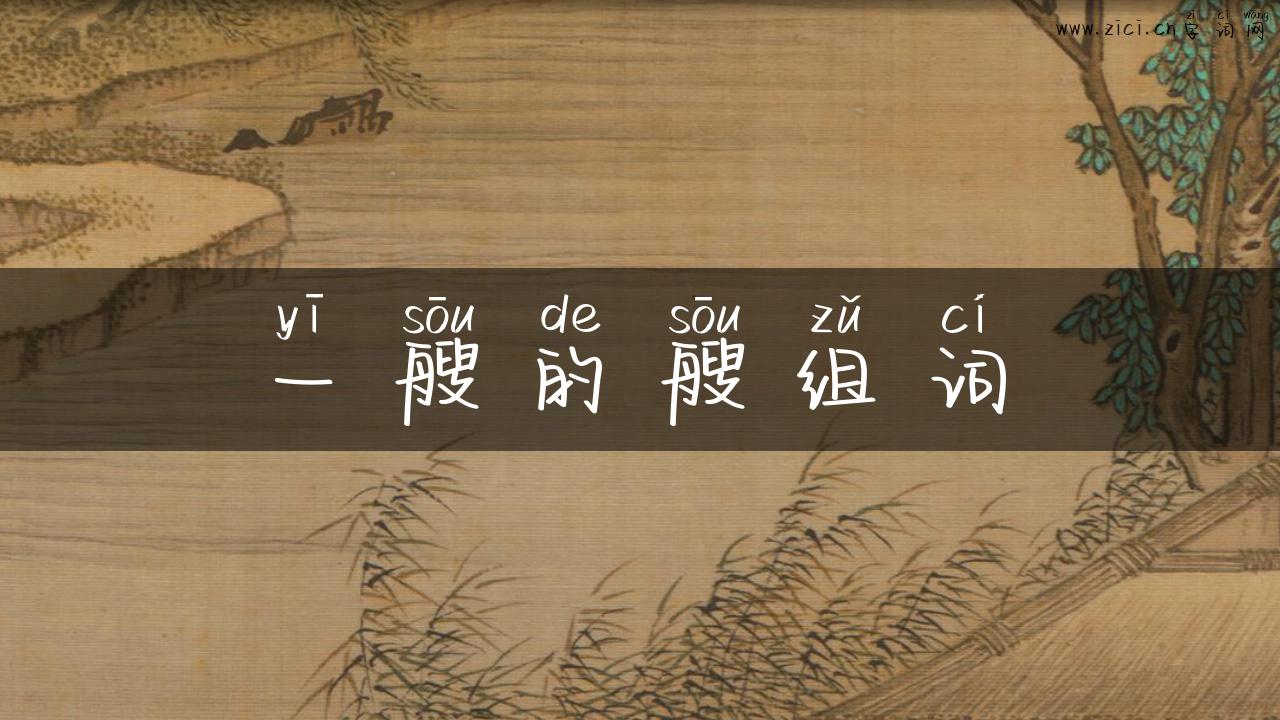 zì cí wǎng
www.zici.cn字词网
yī sōu de sōu zǔ cí
一艘的艘组词